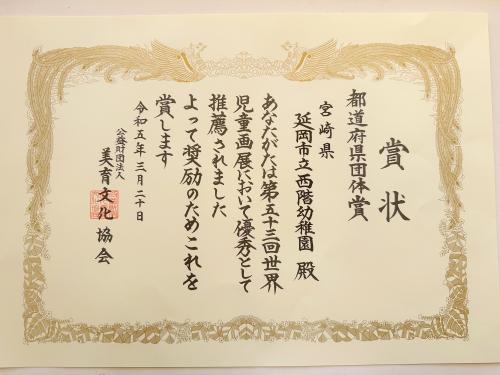 賞状
都道府県団体賞
宮崎県
延岡市立西階幼稚園 殿
あなたがたは第五十三回世界
児童画展において優秀として
推薦されました
よって奨励のためこれを
賞します
令和五年三月二十日
公益財団法人
美育文化協会